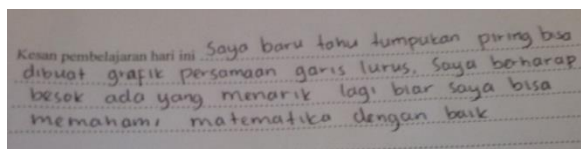 Kesan pembelajaran hari ini Saya baru tahu tumpukan piring bisa
dibuat grafik persamaan garis lurus. Saya berharap
besok ada yang menarik lagi biar saya bisa
memahami matematika dengan baik